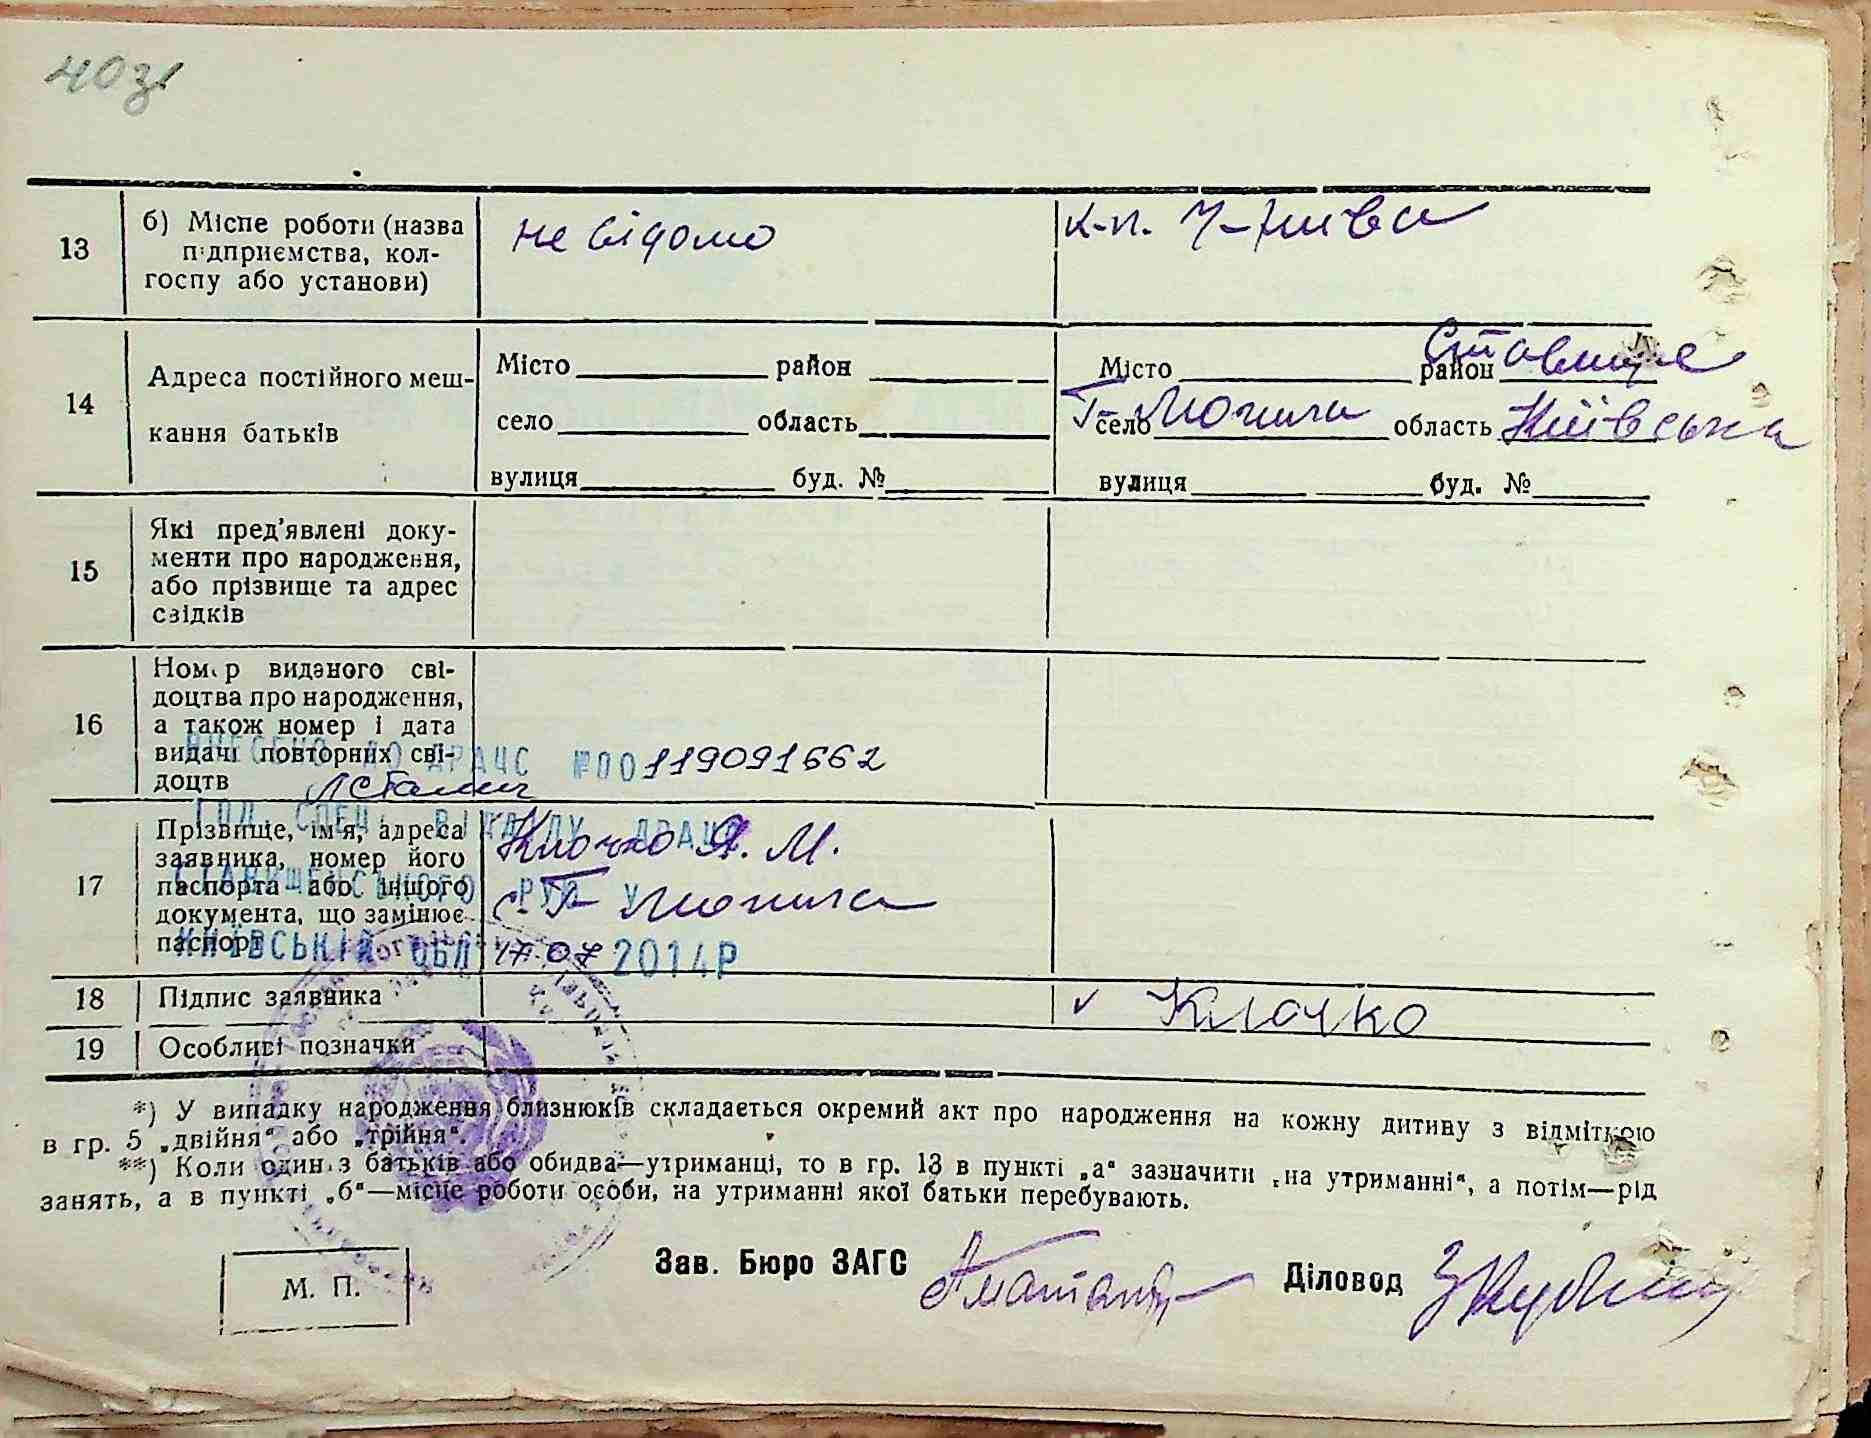 40зв
13
б) Місце роботи (назва
підприємства, кол-
госпу або установи)
не відомо
к-п.
14
Адреса постійного меш-
кання батьків
Місто район
село область
вулиця буд. №
Місто район Ставище
село Могила область Київська
вулиця буд. №
15
Які пред'явлені доку-
менти про народження,
або прізвище та адрес
свідків
16
Номер виданого сві-
доцтва про народження,
а також номер і дата
видачі повторних сві-
доцтв
ВНЕСЕНО ДО ДРАЦС №00119091662
17
Прізвище, ім'я, адреса
заявника, номер його
паспорта або іншого
документа, що замінює
паспорт
Клочко Я. М.
с. Г Могила
КИЇВСЬКІЙ ОБЛ 17.07 2014Р
18
Підпис заявника
Клочко
19
Особливі позначки
*) У випадку народження близнюків складається окремий акт про народження на кожну дитину з відміткою
в гр. 5 „двійня“ або „трійня“.
**) Коли один з батьків або обидва—утриманці, то в гр. 13 в пункті „а“ зазначити „на утриманні“, а потім—рід
занять, а в пункті „б“—місце роботи особи, на утриманні якої батьки перебувають.
М. П.
Зав. Бюро ЗАГС
Діловод